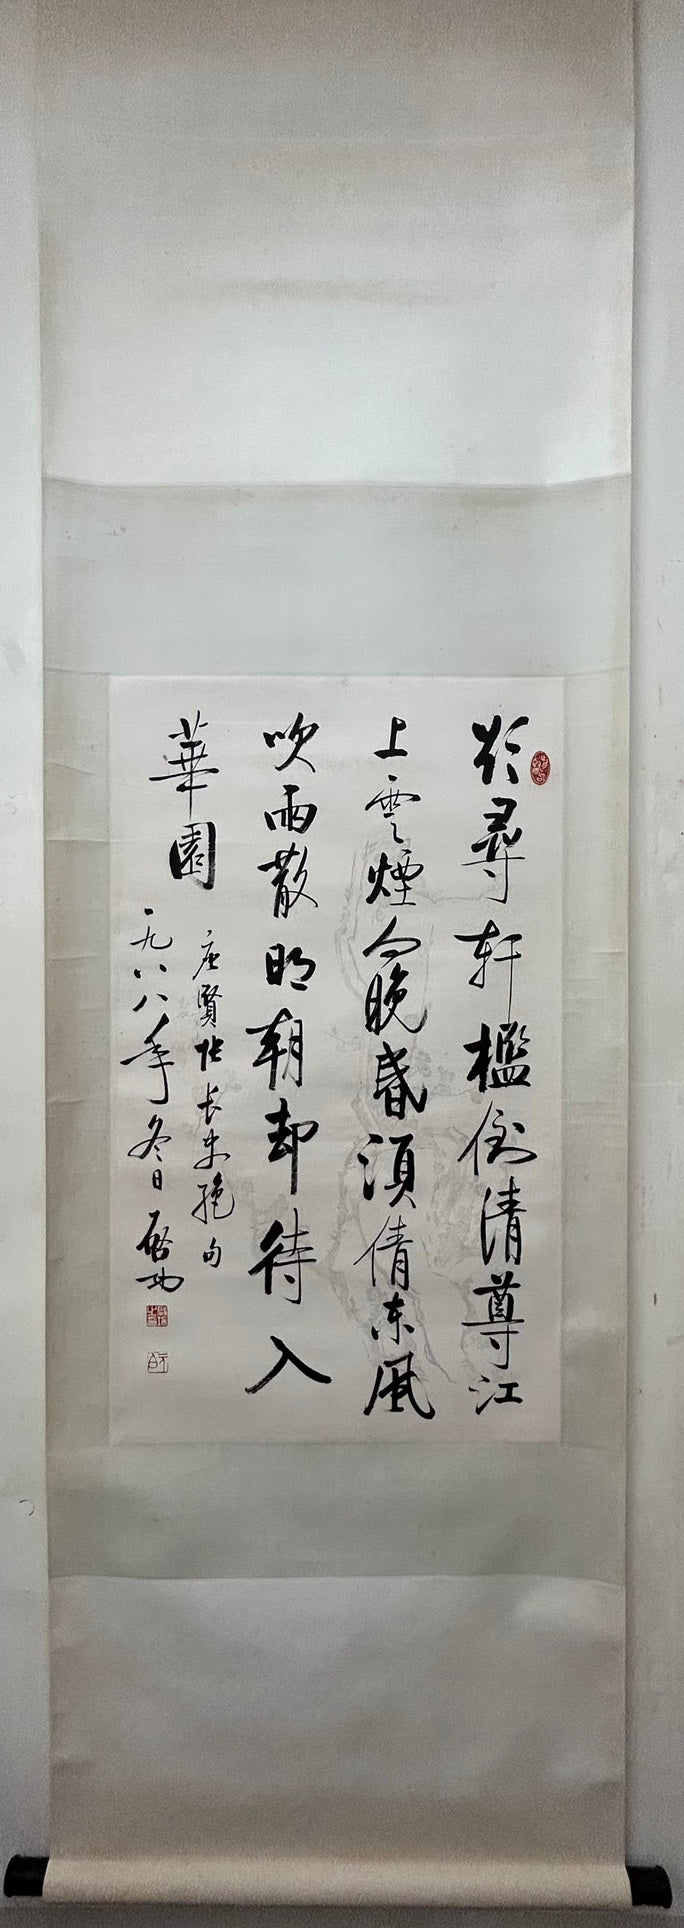 欲尋軒檻倒清尊江
上雲煙向晚昏須倩東風
吹雨散明朝却待入
華園
唐賢張長史絕句
一九八八年冬日啟功